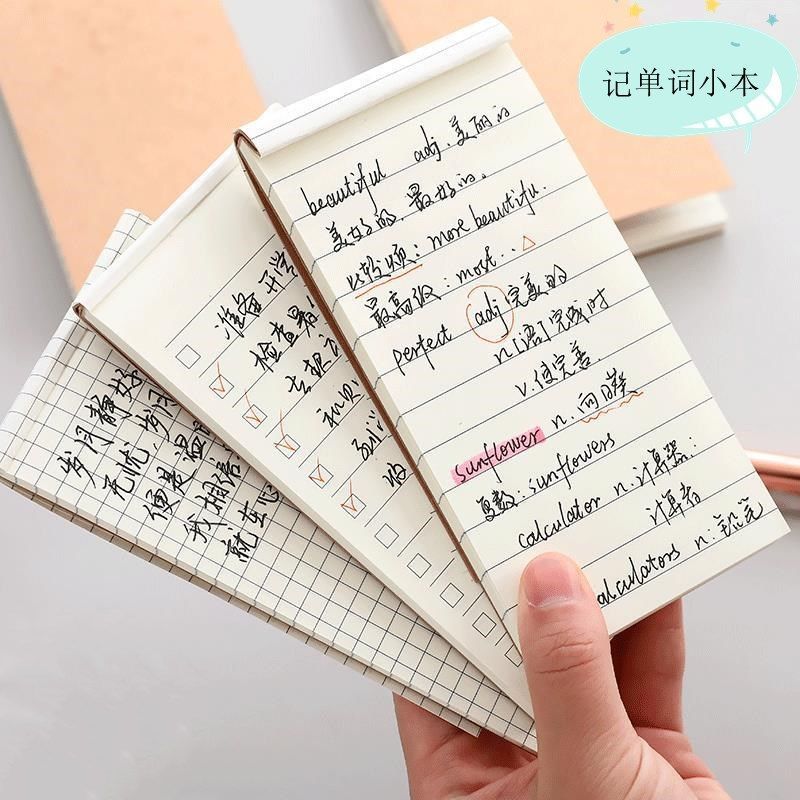 记单词小本
beautiful adj. 美丽的
美好的. 最好的.
比较级: more beautiful.
最高级: most..
perfect adj 完美的
n.(语)完成时
v.使完善.
sunflower n. 向日葵
复数: sunflowers
calculator n. 计算器;
计算者
alculators n.
准备开学
检查暑
去报
岁月静好
无忧 岁月
便是温
我相信
就在心